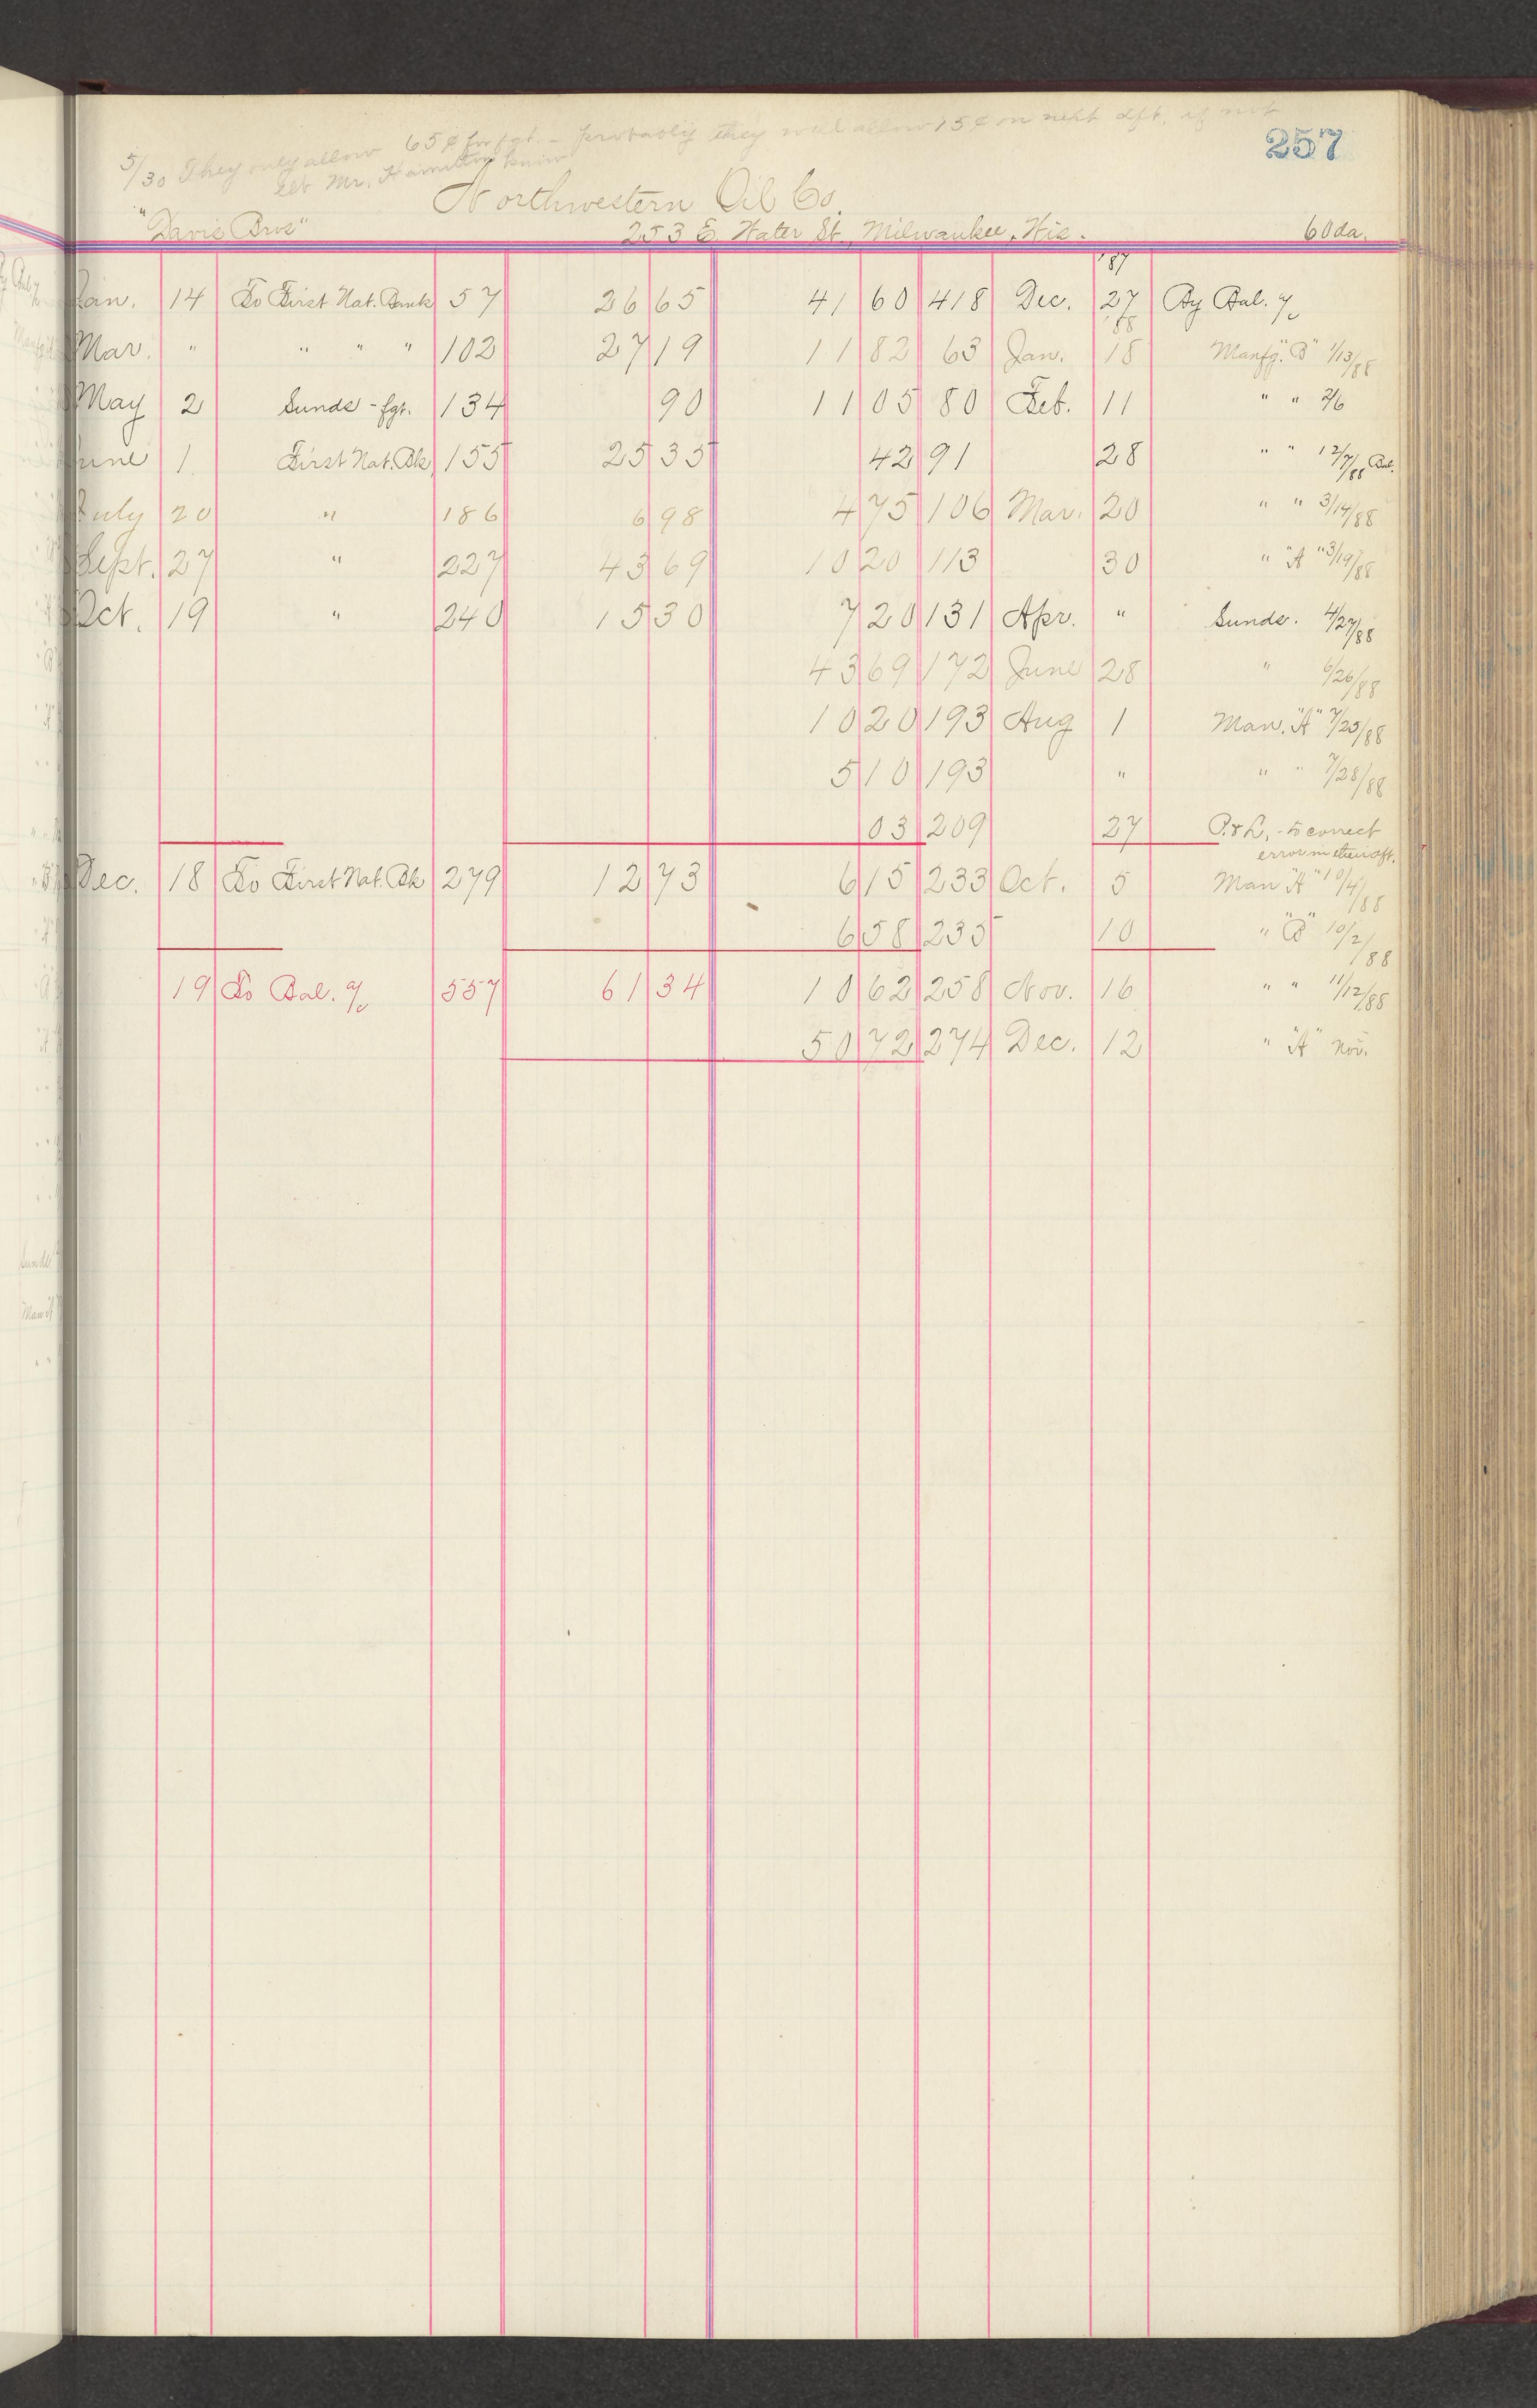 257
5/30 They only allow 65¢ for fgt. - probably they will allow 15¢ on next dft, if not
let Mr. Hamilton know
Northwestern Oil Co.
"Davis Bros" 253 E. Water St., Milwaukee, Wis. 60da.
'87
Jan. 14 To First Nat. Bank 57 26 65 41 60 418 Dec. 27 By Bal. a/c
'88
Mar. " " " " 102 27 19 11 82 63 Jan. 18 Manfg. "B" 1/13/88
May 2 Sunds - fgt. 134 90 11 05 80 Feb. 11 " " 2/6
June 1 First Nat. Bk 155 25 35 42 91 28 " " 12/7/88 Bal.
July 20 " 186 6 98 4 75 106 Mar. 20 " " 3/14/88
Sept. 27 " 227 43 69 10 20 113 30 " "A" 3/19/88
Oct. 19 " 240 15 30 7 20 131 Apr. " Sunds. 4/27/88
43 69 172 June 28 " 6/26/88
10 20 193 Aug 1 Man. "A" 7/25/88
5 10 193 " " " 7/28/88
03 209 27 P. & L. - to correct
error in their dft.
Dec. 18 To First Nat. Bk 279 12 73 6 15 233 Oct. 5 Man "A" 10/4/88
6 58 235 10 " "B" 10/2/88
19 To Bal. a/c 557 61 34 10 62 258 Nov. 16 " " 11/12/88
50 72 274 Dec. 12 " "A" Nov.